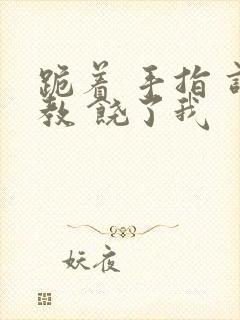 跪着 手指
教 饶了我
妖夜